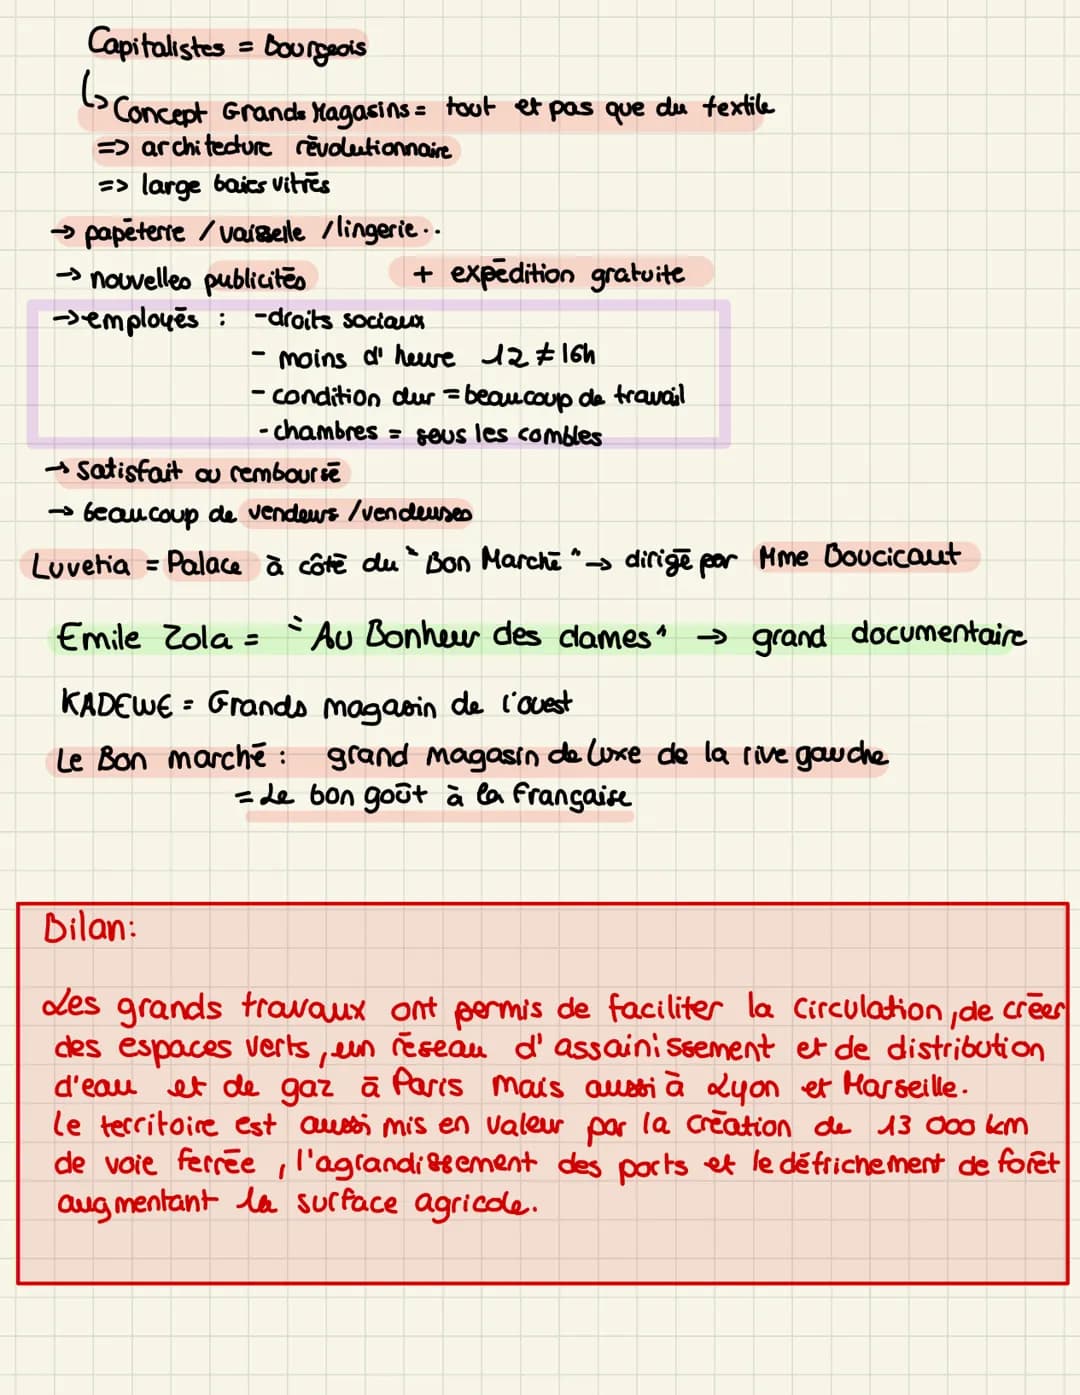 Capitalistes = Bourgeois
↳ Concept Grands Magasins = tout et pas que du textile
=> architecture révolutionnaire
=> large baies vitrés
→ papéterie / vaisselle / lingerie..
→ nouvelles publicités + expédition gratuite
→ employés : - droits sociaux
- moins d'heure 12 ≠ 16h
- condition dur = beaucoup de travail
- chambres = sous les combles
→ satisfait ou remboursé
→ beaucoup de vendeurs / vendeuses
Luvetia = Palace à côté du "Bon Marché" → dirigé par Mme Boucicaut
Emile Zola = "Au Bonheur des dames" → grand documentaire
KADEWE = Grands magasin de l'ouest
Le Bon marché : grand magasin de luxe de la rive gauche
= Le bon goût à la Française
Bilan:
Les grands travaux ont permis de faciliter la circulation, de créer
des espaces verts, un réseau d'assainissement et de distribution
d'eau et de gaz à Paris mais aussi à Lyon et Marseille.
Le territoire est aussi mis en valeur par la création de 13 000 km
de voie ferrée, l'agrandissement des ports et le défrichement de forêt
augmentant la surface agricole.